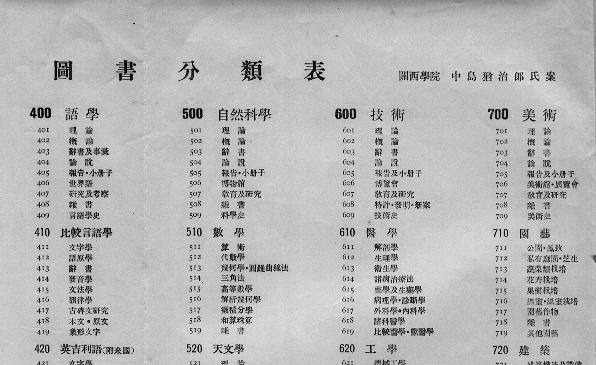 圖書分類表
關西學院 中島猶治郎氏案
400 語學
401 理論
402 概論
403 辭書及事彙
404 論說
405 報告・小册子
406 世界語
407 研究及考察
408 雜書
409 言語學史
410 比較言語學
411 文字學
412 語原學
413 辭書
414 發音學
415 文法學
416 韻律學
417 古碑文研究
418 本文・原文
419 象形文字
420 英吉利語(附米國)
421 文字學
500 自然科學
501 理論
502 概論
503 辭書
504 論說
505 報告・小册子
506 博物館
507 敎育及研究
508 雜書
509 科學史
510 數學
511 算術
512 代數學
513 幾何學・圓錐曲線法
514 三角法
515 高等數學
516 解析幾何學
517 微積分學
518 和算珠算
519 雜書
520 天文學
521 理論
600 技術
601 理論
602 概論
603 辭書
604 論說
605 報告及小册子
606 博覽會
607 敎育及研究
608 特許・發明・新案
609 技術史
610 醫學
611 解剖學
612 生理學
613 衛生學
614 諸病治療法
615 藥學及生藥學
616 病理學・診斷學
617 外科學・內科學
618 諸科醫學
619 比較醫學・獸醫學
620 工學
621 機械工學
700 美術
701 理論
702 概論
703 辭書
704 論說
705 報告及小册子
706 美術舘・展覽會
707 敎育及研究
708 雜書
709 美術史
710 園藝
711 公園・風致
712 私有庭園・芝生
713 蔬菜類栽培
714 花卉栽培
715 果樹栽培
716 溫室・溫室栽培
717 園藝作物
718 雜書
719 其他園藝
720 建築
721